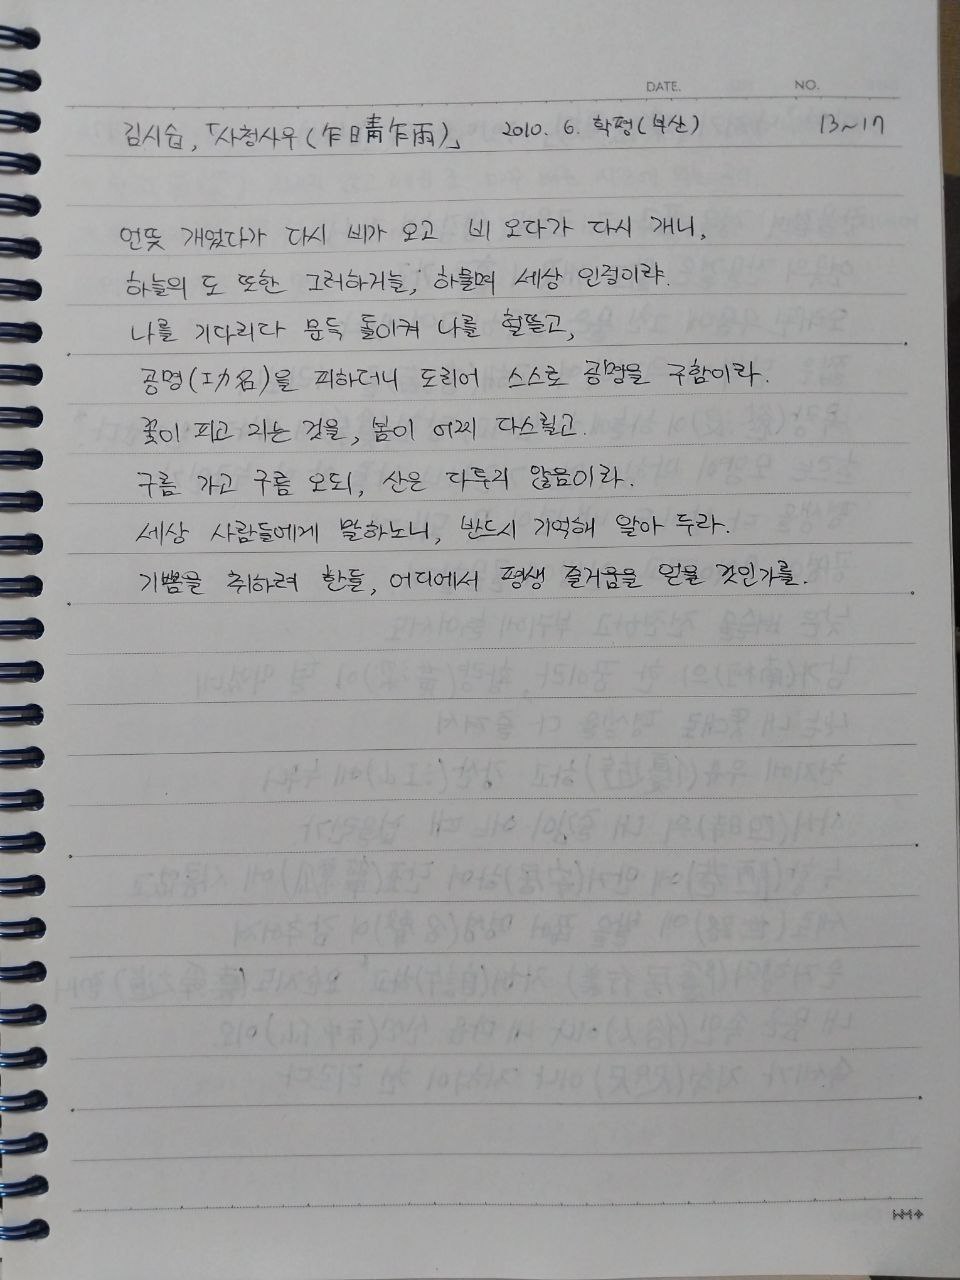 DATE. NO.
김시습, 「사청사우(乍晴乍雨)」 2010. 6. 학평(부산) 13~17
언뜻 개었다가 다시 비가 오고 비 오다가 다시 개니,
하늘의 도 또한 그러하거늘, 하물며 세상 인정이랴.
나를 기다리다 문득 돌이켜 나를 헐뜯고,
공명(功名)을 피하더니 도리어 스스로 공명을 구함이라.
꽃이 피고 지는 것을, 봄이 어찌 다스릴고.
구름 가고 구름 오되, 산은 다투지 않음이라.
세상 사람들에게 말하노니, 반드시 기억해 알아 두라.
기쁨을 취하려 한들, 어디에서 평생 즐거움을 얻을 것인가를.